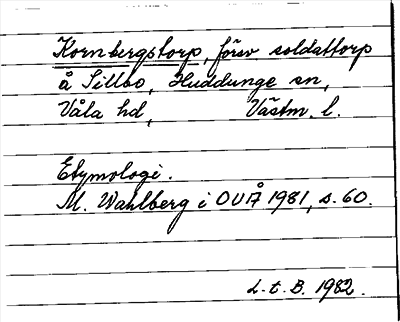 Kornbergstorp, försv soldattorp
å Sillbo, Huddunge sn,
Våla hd, Västm. l.
Etymologi.
M. Wahlberg i OUÅ 1981, s. 60.
L.t.B. 1982.